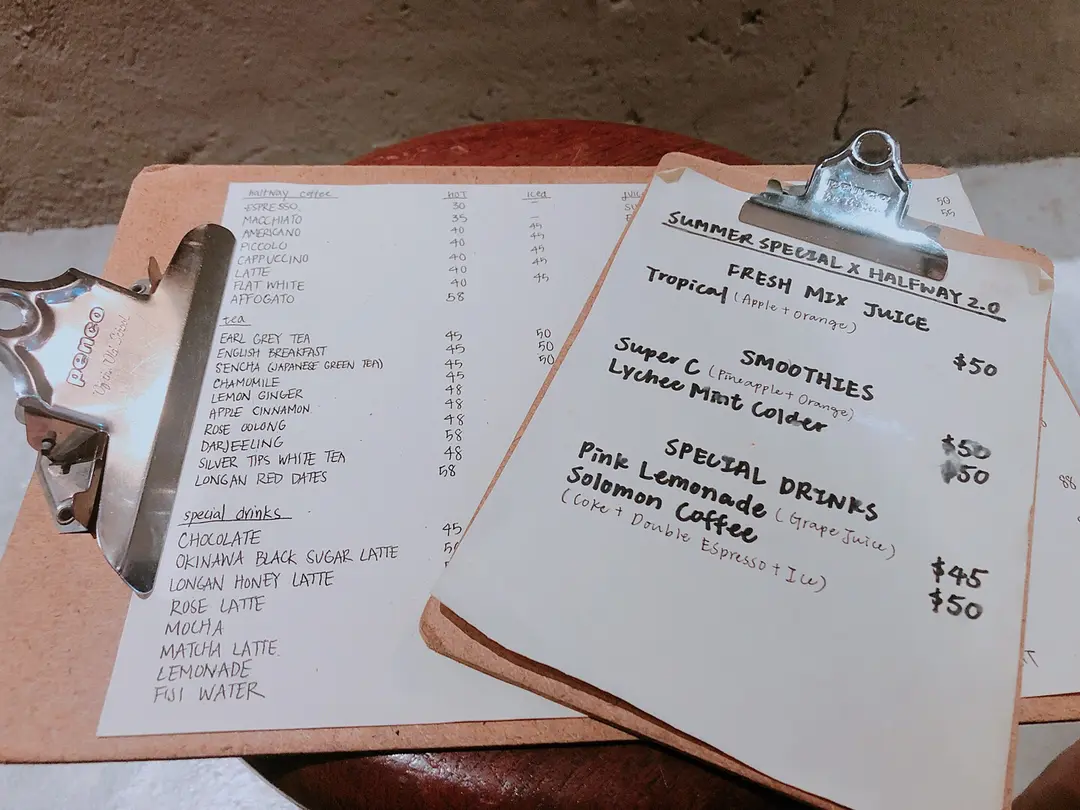 halfway coffee HOT ICED
ESPRESSO 30
MACCHIATO 35 —
AMERICANO 40 45
PICCOLO 40 45
CAPPUCCINO 40 45
LATTE 40 45
FLAT WHITE 40 45
AFFOGATO 58
tea
EARL GREY TEA 45 50
ENGLISH BREAKFAST 45 50
SENCHA (JAPANESE GREEN TEA) 45 50
CHAMOMILE 45
LEMON GINGER 48
APPLE CINNAMON 48
ROSE OOLONG 48
DARJEELING 58
SILVER TIPS WHITE TEA 48
LONGAN RED DATES 58
special drinks
CHOCOLATE 45
OKINAWA BLACK SUGAR LATTE
LONGAN HONEY LATTE
ROSE LATTE
MOCHA
MATCHA LATTE
LEMONADE
FIJI WATER
penco
50
55
88
SUMMER SPECIAL X HALFWAY 2.0
FRESH MIX JUICE
Tropical (Apple + Orange) $50
SMOOTHIES
Super C (Pineapple + Orange) $50
Lychee Mint Colder $50
SPECIAL DRINKS
Pink Lemonade (Grape Juice) $45
Solomon Coffee $50
(Coke + Double Espresso + Ice)